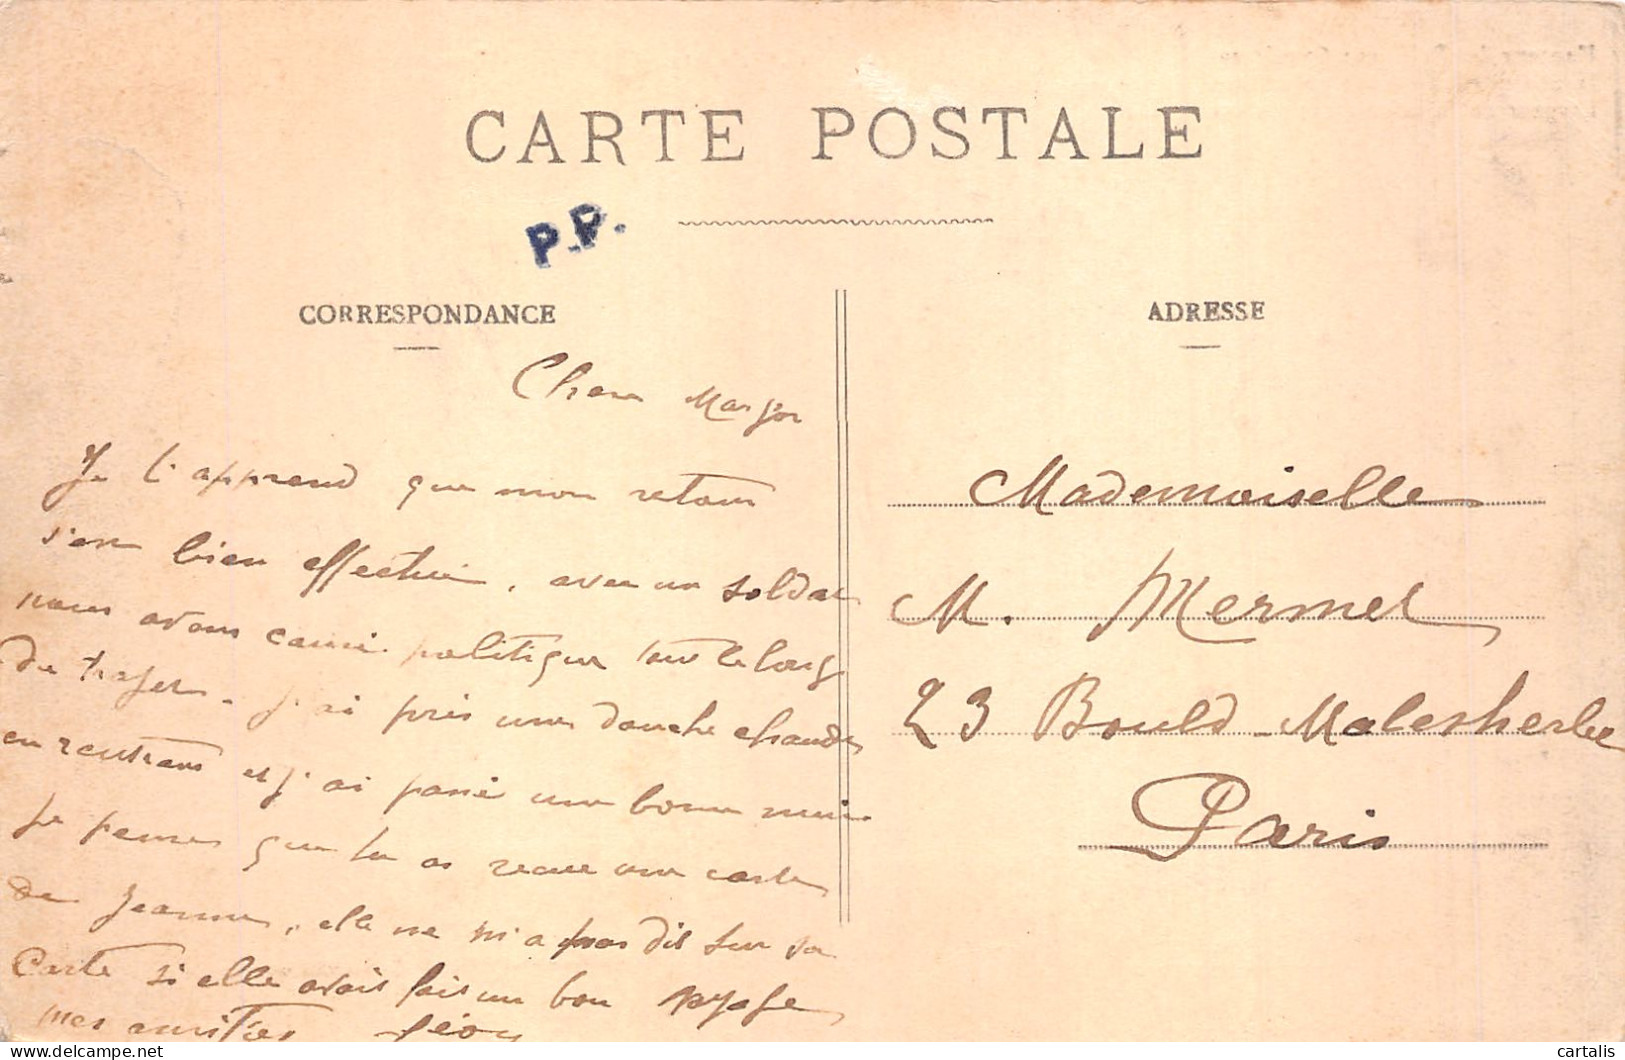 CARTE POSTALE
P.P.
CORRESPONDANCE
Chere Margot
Je t'apprend que mon retour
s'en bien effectué, avec un soldat
nous avons causé politique tout le long
du trajet. j'ai pris une douche chaude
en rentrant et j'ai passé une bonne nuit.
Je pense que tu as recue une carte
de Jeanne, elle ne m'a pas dit sur sa
Carte si elle avait fait un bon voyage
mes amitiés Léon
ADRESSE
Mademoiselle
M. Mermet
23 Bould Malesherbe
Paris
cartalis